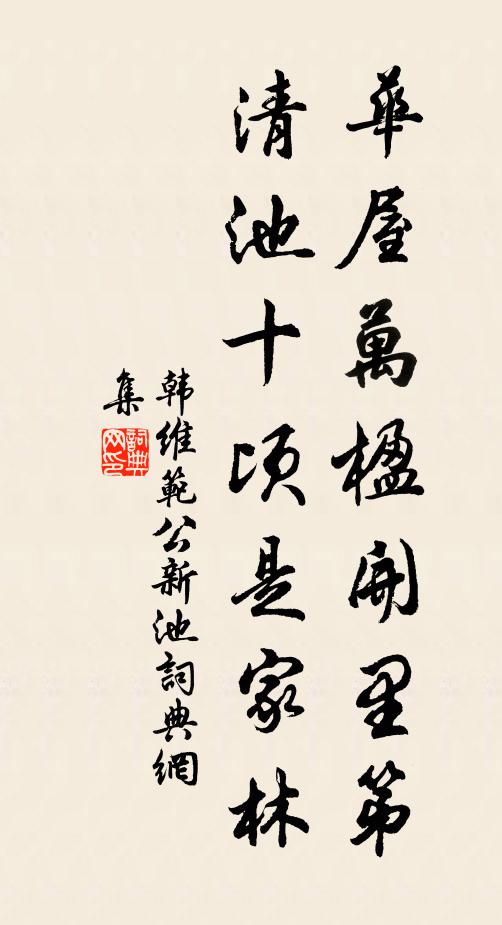 華屋萬楹開里第
清池十頃是家林
韩維範公新池詞典網
集
詞典网印